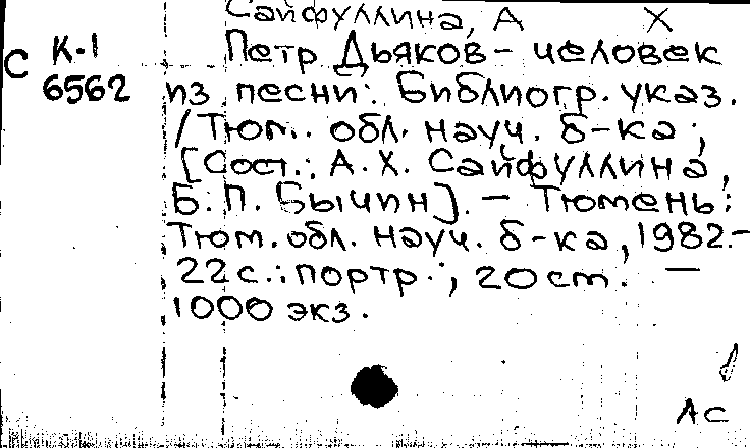 Сайфуллина, А Х
С К-1 Петр Дьяков - человек
6562 из песни: Библиогр. указ.
/ Тюм. обл. науч. б-ка;
[Сост.: А. Х. Сайфуллина,
Б. П. Бычин]. - Тюмень:
Тюм. обл. науч. б-ка, 1982. -
22 с.: портр.; 20 ст. -
1000 экз.
АС